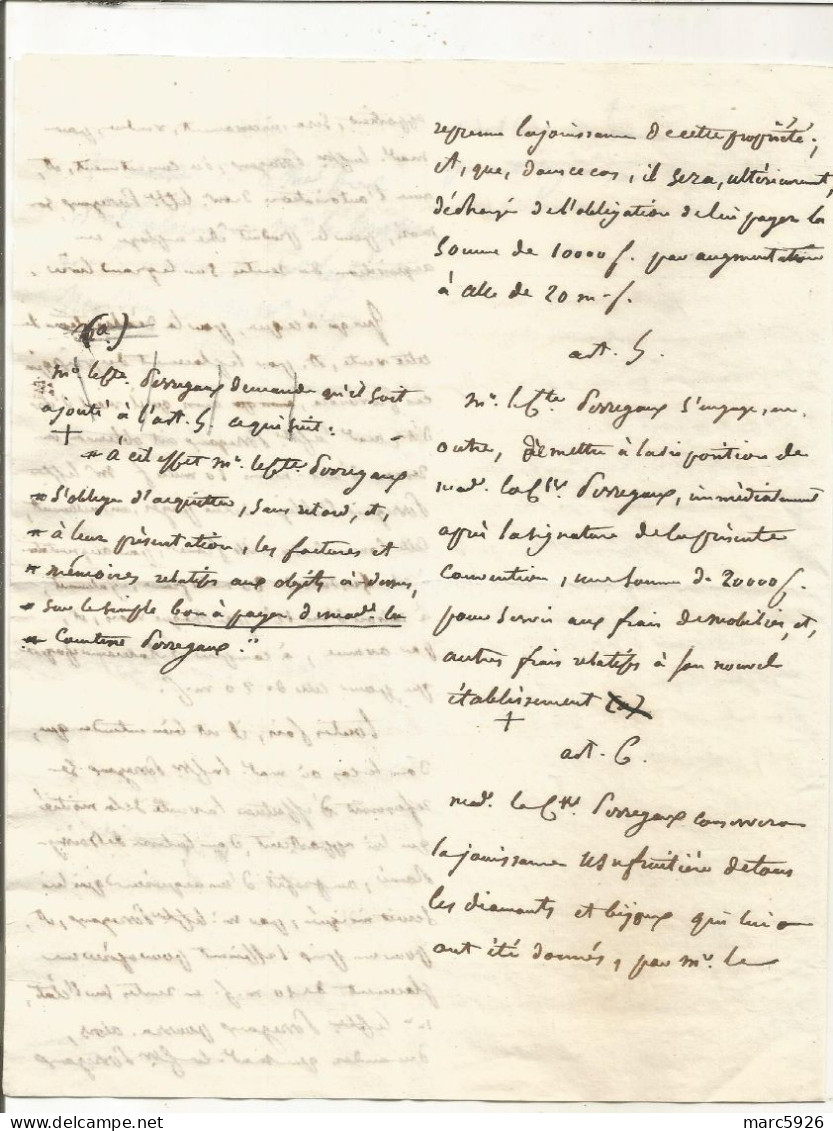 reprenne la jouissance de cette propriété ;
et, que, dans ce cas, il sera, ultérieurement,
déchargé de l'obligation de lui payer la
somme de 10000 f. par augmentation
à celle de 20 m. f.
art. 5.
mr. le Cte. Perregaux s'engage, en
outre, de mettre à la disposition de
made. la Csse. Perregaux, immédiatement
après la signature de la présente
convention, une somme de 20000 f.
pour servir aux frais de mobilier, et,
autres frais relatifs à son nouvel
établissement (a)
+
art. 6.
made. la Csse. Perregaux conservera
la jouissance usufruitière de tous
les diamants et bijoux qui lui
ont été donnés, par mr. le
(a)
mr. le Cte. Perregaux demande qu'il soit
ajouté à l'art. 5. ce qui suit :
+
" à cet effet mr. le Cte. Perregaux
" s'oblige d'acquitter, sans retard, et,
" à leur présentation, les factures et
" mémoires relatifs aux objets ci-dessus,
" sur le simple bon à payer de made. la
" Comtesse Perregaux. "
marc5926